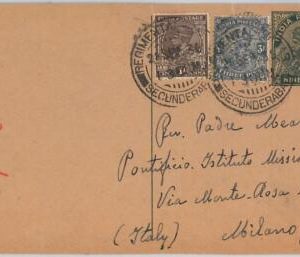 INDIA POSTAGE
INDIA
THREE PIES
REGIMENTAL
SECUNDERABAD
SECUNDERABAD
Rev. Padre Mea
Pontificio. Istituto Missi
Via Monte-Rosa
(Italy) Milano